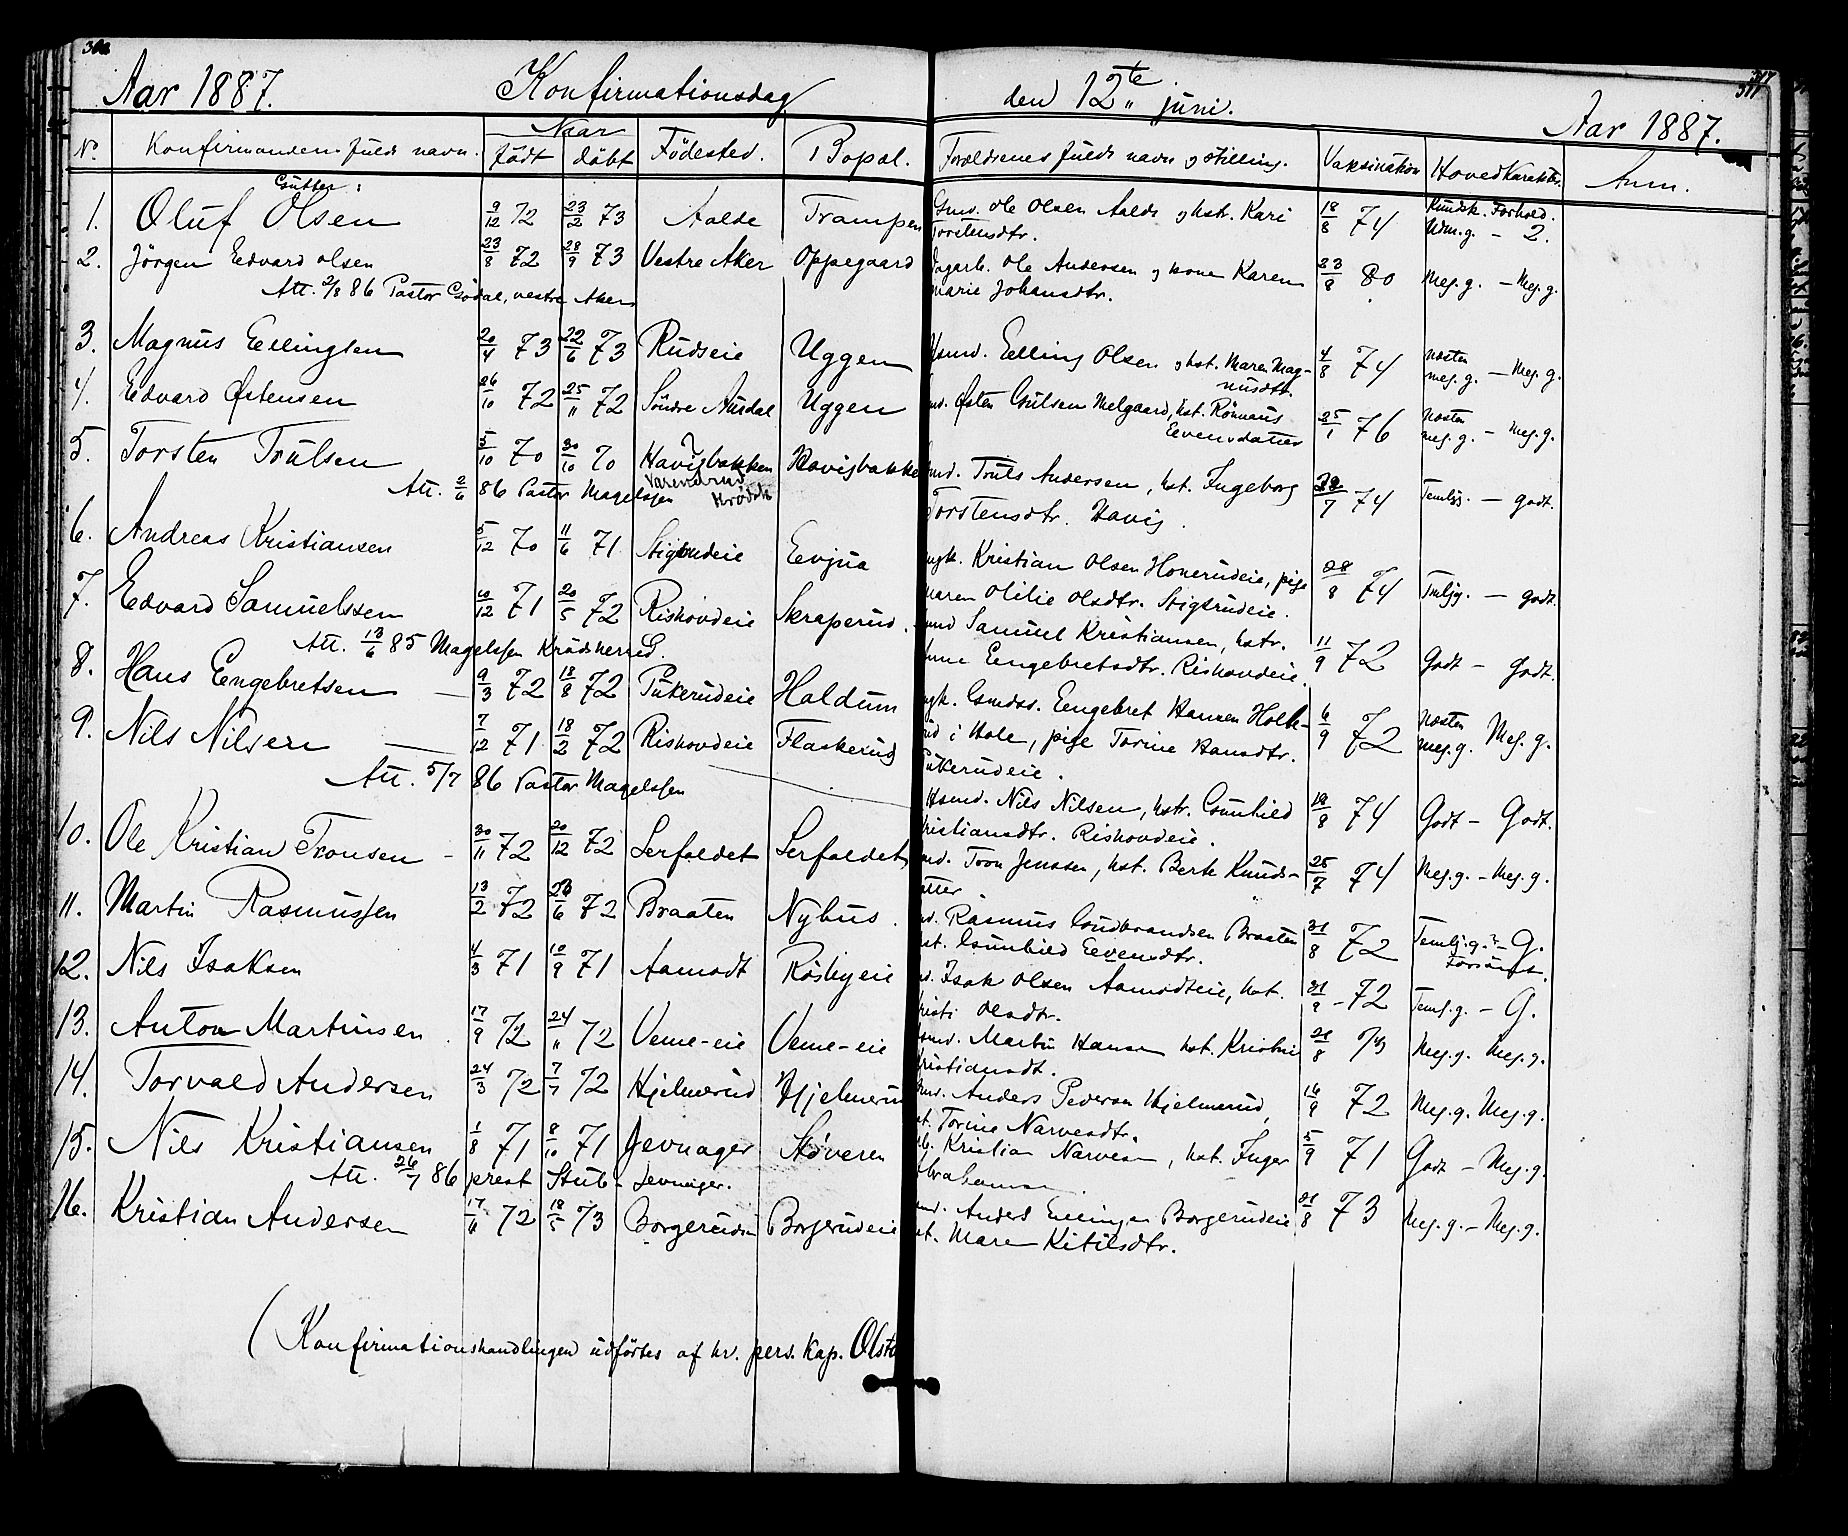 Aar 1887. Konfirmationsdag den 12te juni. Aar 1887.
No. Konfirmandens fulde navn. Naar födt döbt Födested. Bopæl. Forældrenes fulde navn og stilling. Vaksination Hovedkarakter. Anm.
Gutter: Kundsk. Forhold.
1. Oluf Olsen 9/12 72 23/2 73 Aalde Trampen Gmd. Ole Olsen Aalde og hstr. Kari 18/8 74 Udm.g. - 2.
Torstensdtr.
2. Jörgen Edvard Olsen 23/8 72 28/9 73 Vestre Aker Oppegaard Dagarb. Ole Andersen og kone Karen 23/8 80 Meg. g. - Meg. g.
Att. 2/8 86 Pastor Gödal, vestre Aker marie Johansdtr.
3. Magnus Ellingsen 20/4 73 22/6 73 Rudseie Uggen Hsmd. Elling Olsen og hst. Maren Mag- 4/8 74 Næsten meg. g. - Meg. g.
nusdtr.
4. Edvard Østensen 26/10 72 25/11 72 Söndre Ausdal Uggen Østen Gulsen Melgaard, hst. Rönnaug 25/1 76 Næsten meg. g. - meg. g.
Evensdatter
5. Torsten Trulsen 5/10 70 30/10 70 Havigbakken Havigbakke Truls Andersen, hst. Ingeborg 28/7 74 Temlig. - godt.
Att. 2/6 86 Pastor Magelssen Torstensdtr. Havig.
6. Andreas Kristiansen 5/12 70 11/6 71 Stigsrudeie Evjua ungk. Kristian Olsen Honerudeie, pige 28/8 74 Temlig. - godt.
maren Otilie Olsdtr. Stigsrudeie.
7. Edvard Samuelssen 10/12 71 20/5 72 Riskovdeie Skraperud. Samuel Kristiansen, hstr. 11/9 72 Godt - Godt.
Att. 13/6 85 Magelssen Krödsherred. Anne Engebretsdtr. Riskovdeie.
8. Hans Engebretsen 9/3 72 18/8 72 Pukerudeie Haldum ugk. Gmdss. Engebret Hansen Holle- 6/9 72 Næsten meg. g. Meg. g.
rud i Hole, pige Torine Hansdtr.
Pukerudeie.
9. Nils Nilsen 7/12 71 18/2 72 Riskovdeie Flaskerud Hsmd. Nils Nilsen, hstr. Gunhild 18/8 74 Godt - Godt.
Att. 5/7 86 Pastor Magelssen Kristiansdtr. Riskovdeie.
10. Ole Kristian Tronsen - 30/11 72 20/12 72 Lerfaldet Lerfaldet Tron Jenssen, hst. Berte Knuds- 25/7 74 Meg. g. - Meg. g.
atter
11. Martin Rasmussen 13/2 72 23/6 72 Braaten Nyhus. Rasmus Gudbrandsen Braaten 31/8 72 Temlig.g. - G.
hst. Gunhild Evensdtr.
12. Nils Isaksen 4/3 71 10/9 71 Aamodt Rösbyeie Isak Olsen Aamodteie, hst. 31/9 - 72 Teml. g. - G.
Kristi Olsdtr.
13. Anton Martinsen 17/9 72 24/11 72 Veme-eie Veme-eie Hsmd. Martin Hansen hst. Kristine 21/8 73 Meg. g. Meg. g.
Kristiansdt.
14. Torvald Andersen 24/3 72 7/7 72 Hjelmerud Hjelmerud Anders Pedersen Hjelmerud, 16/9 72 Meg. g. Meg. g.
hst. Torine Narvesdtr.
15. Nils Kristiansen 1/8 71 8/10 71 Jevnager Støveren Kristian Narvesen, hst. Inger 5/9 71 Godt - Meg. g.
Att. 26/7 86 prest Stub - Jevnager.
16. Kristian Andersen 17/6 72 18/5 73 Borgerudeie Borgerudeie Anders Ellingsen Borgerudeie 21/8 73 Meg. g. - Meg. g.
hst. Maren Kitilsdtr.
(Konfirmationshandlingen udförtes af hr. pers. Kap. Olsta